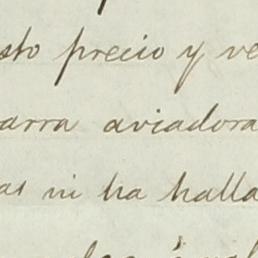 sto precio y ve
arra aviadora
as ni ha halla